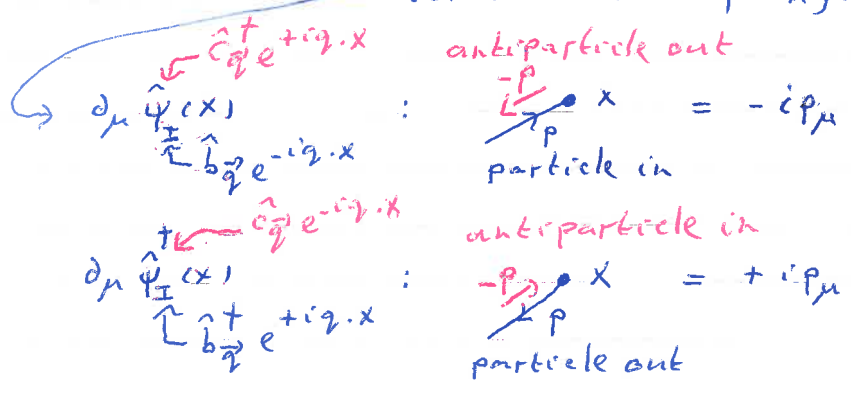 ĉ†_q⃗ e^{+iq·x} antiparticle out
∂_μ ψ̂_I(x) : -p p x = -ip_μ
b̂_q⃗ e^{-iq·x} particle in
ĉ_q⃗ e^{-iq·x} antiparticle in
∂_μ ψ̂†_I(x) : -p p x = +ip_μ
b̂†_q⃗ e^{+iq·x} particle out